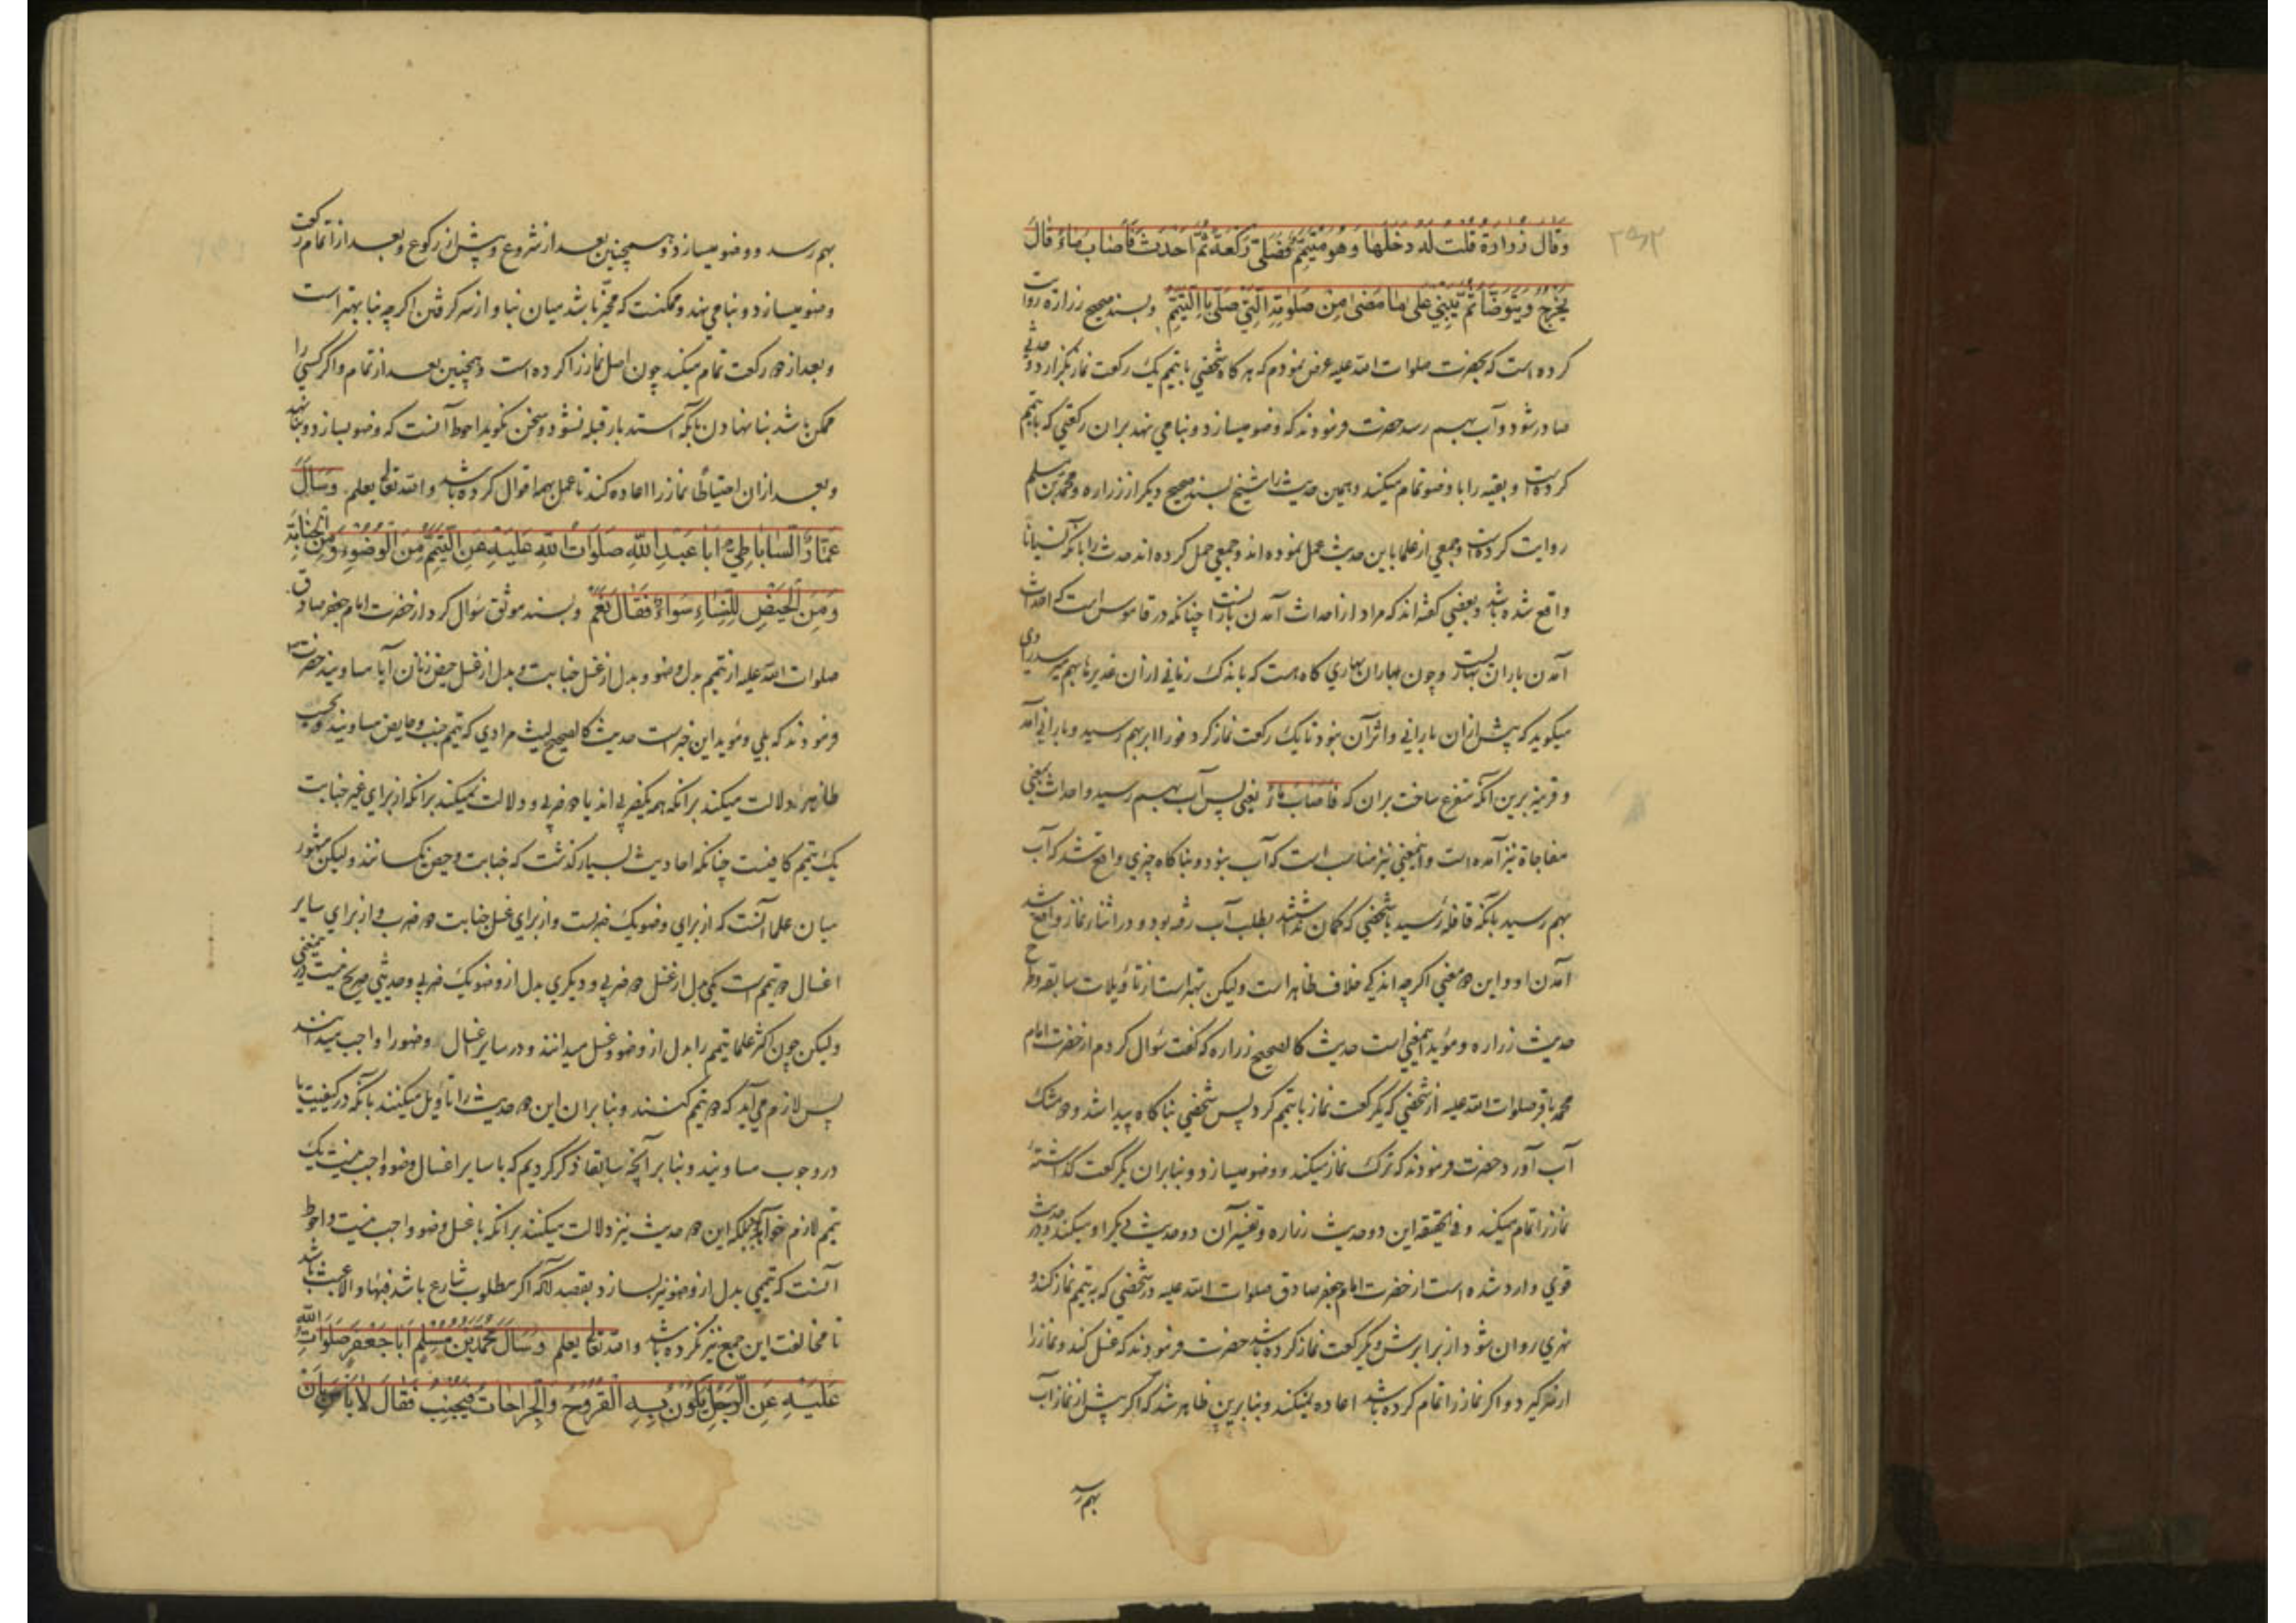 ۲۹۲
وَقالَ زُرارَة قُلتُ لَهُ دَخَلَها وَهُوَ مُتَيَمِّم فَصَلّى رَكعَةً ثُمَّ اَحدَثَ فَاَصابَ ماءً قالَ
يَخرُجُ وَيَتَوَضَّأ ثُمَّ يَبني عَلى ما مَضى مِن صَلوتِهِ الَّتي صَلّى بِالتَّيَمُّمِ وبسند صحیح زراره روایت
کرده است که بحضرت صلوات الله علیه عرض نمودم که هر کاه شخصی با تیمم یک رکعت نماز بگزارد و حدثی
صادر شود و آب بهم رسد حضرت فرمودند که وضو میسازد و بنا می نهد بران رکعتی که با تیمم
کرده است و بقیه را با وضو تمام میکند و همین حدیث را شیخ بسند صحیح دیگر از زراره و محمد بن مسلم
روایت کرده است و جمعی از علما باین حدیث عمل نموده اند و جمعی حمل کرده اند حدث را بانکه نسیانا
واقع شده باشد و بعضی گفته اند که مراد از احداث آمدن بارانست چنانکه در قاموس است که احداث
آمدن باران بهاریست و چون باران بهاری کاه هست که باندک زمانی ازان غدیرها بهم میرسد راوی
میگوید که پیش ازان بارانی و اثر آن نبود تا یک رکعت نماز کرد فورا ابر بهم رسید و بارانی آمد
و قرینه برین آنکه متفرع ساخت بران که فَاَصابَ ماءً یعنی پس آب بهم رسید و احداث بمعنی
مفاجاة نیز آمده است و اینمعنی نیز مناسب است که آب نبود و بناکاه چیزی واقع شد که آب
بهم رسید بانکه قافله رسید یا شخصی که کمان نداشتند بطلب آب رفته بود و در اثناء نماز واقع شد
آمدن او و این دو معنی اکرچه اندکی خلاف ظاهر است ولیکن بهتر است از تاویلات سابقه و طرح
حدیث زراره و مؤید اینمعنی است حدیث کالصحیح زراره که گفت سؤال کردم از حضرت امام
محمد باقر صلوات الله علیه از شخصی که یکرکعت نماز با تیمم کرد پس شخصی بناکاه پیدا شد و دو مشک
آب آورد حضرت فرمودند که ترک نماز میکند و وضو میسازد و بنا بران یکرکعت گذاشته
نماز را تمام میکند و فی الحقیقه این دو حدیث زراره و تفسیر آن دو حدیث دیگر او میکند و در حدیث
قوی وارد شده است از حضرت امام جعفر صادق صلوات الله علیه در شخصی که به تیمم نماز کند و
نهری روان شود از برابرش و یکرکعت نماز کرده باشد حضرت فرمودند که غسل کند و نماز را
از سر گیرد و اکر نماز را تمام کرده باشد اعاده نمیکند و بنا برین ظاهر شد که اکر پیش از نماز آب
بهم رسد
بهم رسد وضو میسازد و همچنین بعد از شروع و پیش از رکوع و بعد از اتمام رکعت
وضو میسازد و بنا می نهد و ممکنست که مخیر باشد میان بنا و از سر گرفتن اکرچه بنا بهتر است
و بعد از دو رکعت تمام میکند چون اصل نماز را کرده است و همچنین بعد از تمام و اکر کسی را
ممکن باشد بنا نهادن بانکه استدبار قبله نشود و سخن نگوید احوط آنست که وضو بسازد و بنا نهد
و بعد ازان احتیاطا نماز را اعاده کند تا عمل بهمه اقوال کرده باشد و الله تعالی یعلم وَسَاَلَ
عَمّارٌ السّاباطِيّ اَبا عَبدِ اللهِ صَلَواتُ اللهِ عَلَيهِ عَنِ التَّيَمُّمِ مِنَ الوُضوءِ وَمِنَ الجَنابَةِ
وَمِنَ الحَيضِ لِلنِّساءِ سَواءٌ فَقالَ نَعَم وبسند موثق سؤال کرد از حضرت امام جعفر صادق
صلوات الله علیه از تیمم بدل وضو و بدل از غسل جنابت و بدل از غسل حیض زنان آیا مساویند حضرت
فرمودند که بلی و مؤید این خبر است حدیث کالصحیح لیث مرادی که تیمم جنب و حایض مساویند و بحسب
ظاهر دلالت میکند برانکه همه یکضربی اند یا دو ضربی و دلالت نمیکند برانکه از برای غیر جنابت
یک تیمم کافیست چنانکه احادیث بسیار گذشت که جنابت و حیض یکسانند ولیکن مشهور
میان علما آنست که از برای وضو یک ضربست و از برای غسل جنابت دو ضرب و از برای سایر
اغسال دو تیمم است یکی بدل از غسل دو ضربی و دیگری بدل از وضو یک ضربی و حدیثی صریح نیست در اینمعنی
ولیکن چون اکثر علما تیمم را بدل از وضو و غسل میدانند و در سایر اغسال وضو را واجب میدانند
پس لازم می آید که دو تیمم کنند و بنا بران این دو حدیث را تاویل میکنند بانکه در کیفیت یا
در وجوب مساویند و بنا بر آنچه سابقا ذکر کردیم که با سایر اغسال وضو واجب نیست یک
تیمم لازم خواهد بود بلکه این دو حدیث نیز دلالت میکنند برانکه با غسل وضو واجب نیست و احوط
آنست که تیممی بدل از وضو نیز بسازد بقصد آنکه اکر مطلوب شارع باشد فبها و الا عبث باشد
تا مخالفت این جمع نیز نکرده باشد و الله تعالی یعلم وَسَاَلَ مُحَمَّدُ بنُ مُسلِمٍ اَبا جَعفَرٍ صَلَواتُ اللهِ
عَلَيهِ عَنِ الرَّجُلِ يَكونُ بِهِ القُروحُ وَالجِراحاتُ فَيُجنِبُ فَقالَ لا بَأسَ بِاَن